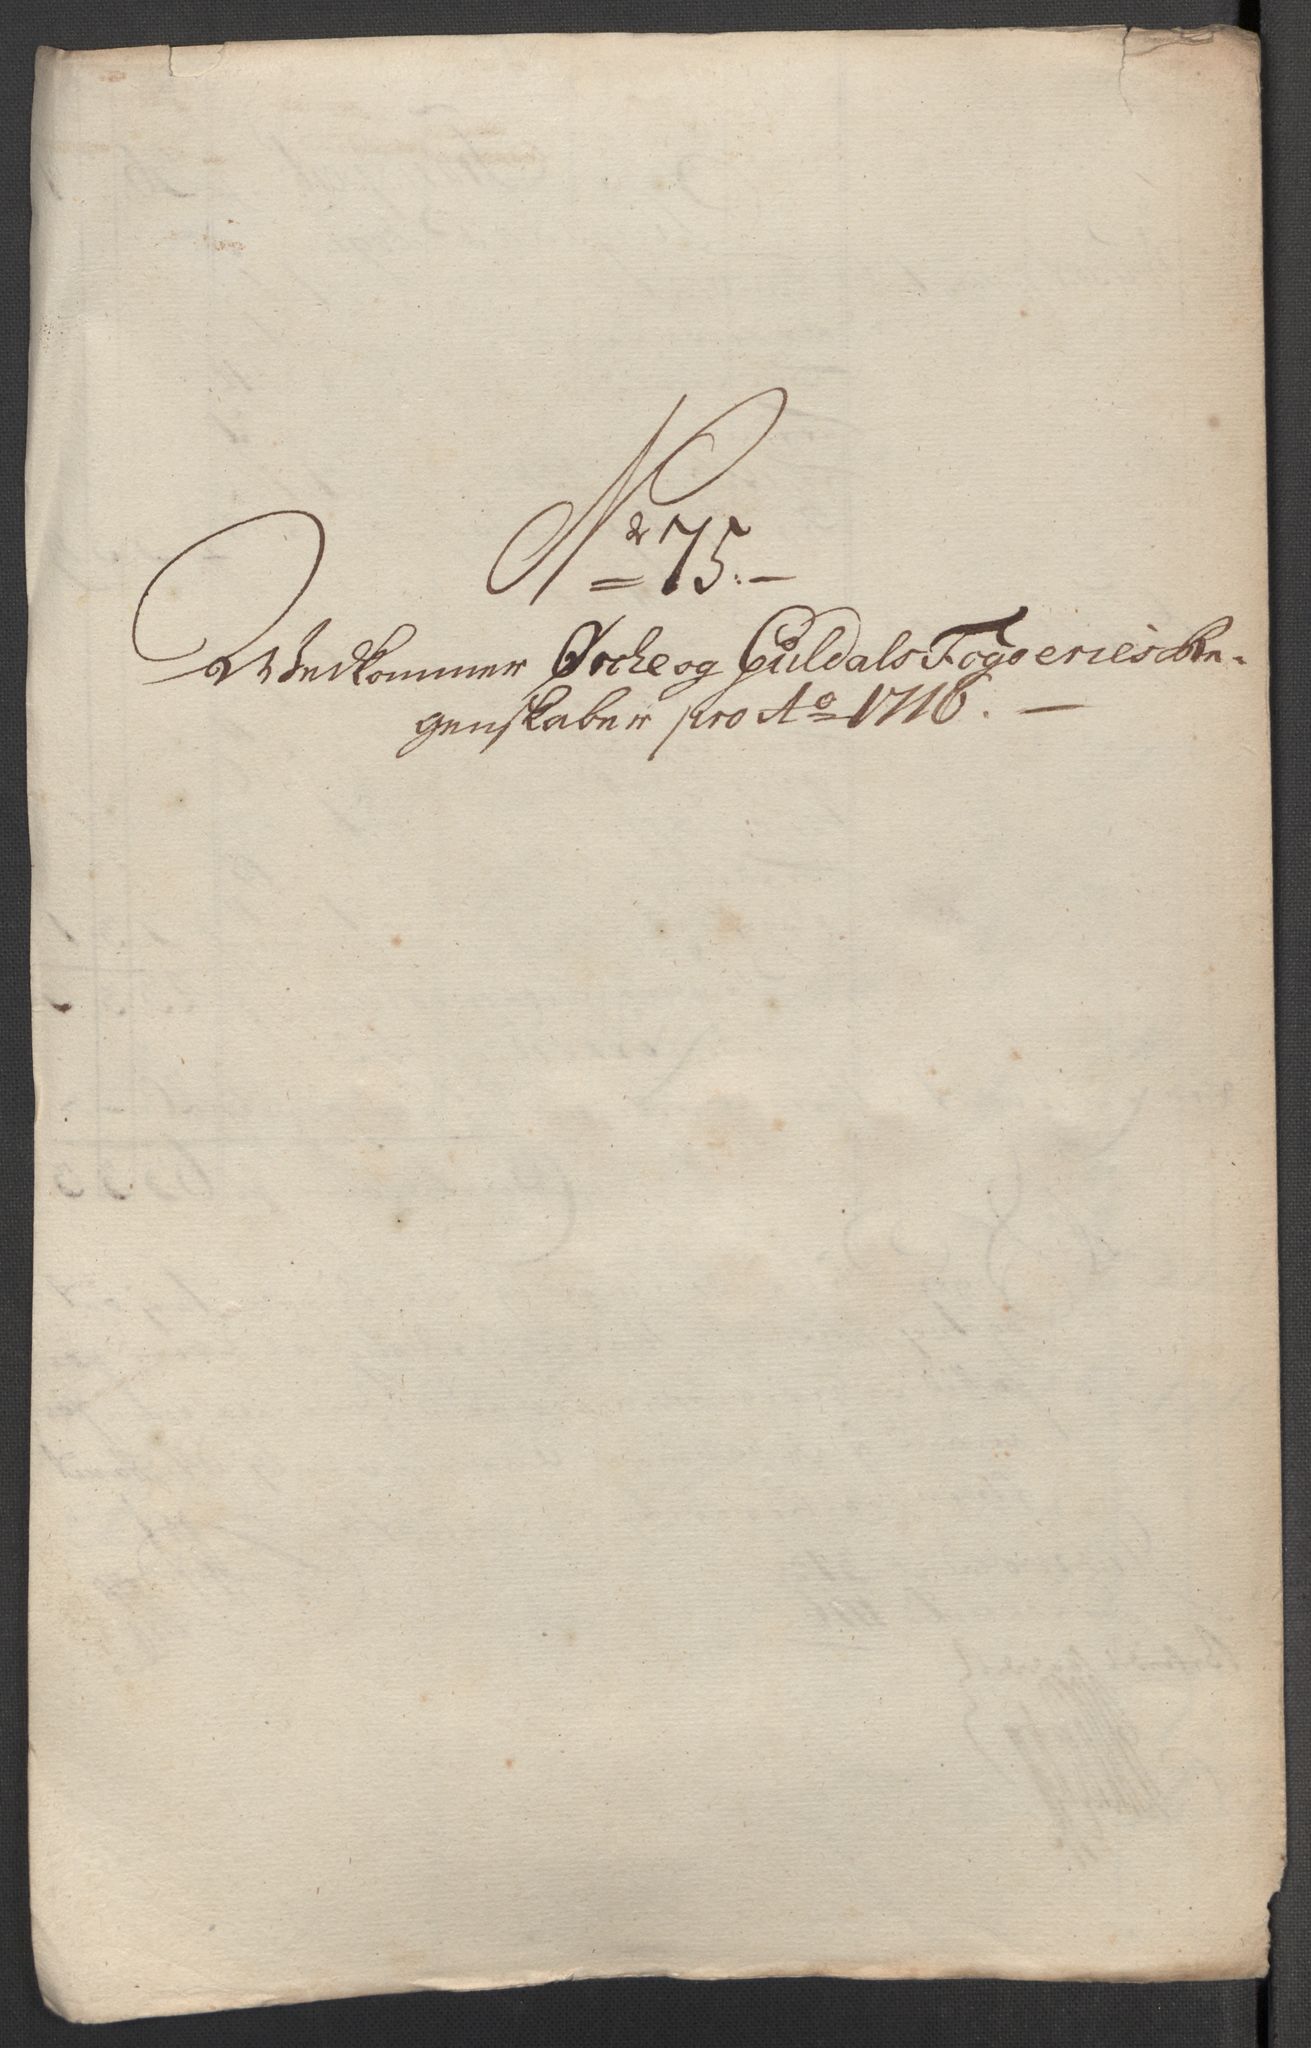 No 75.
Wedkommer Örche og Guldals Fogderies Re-
genskaber pro Ao 1716.